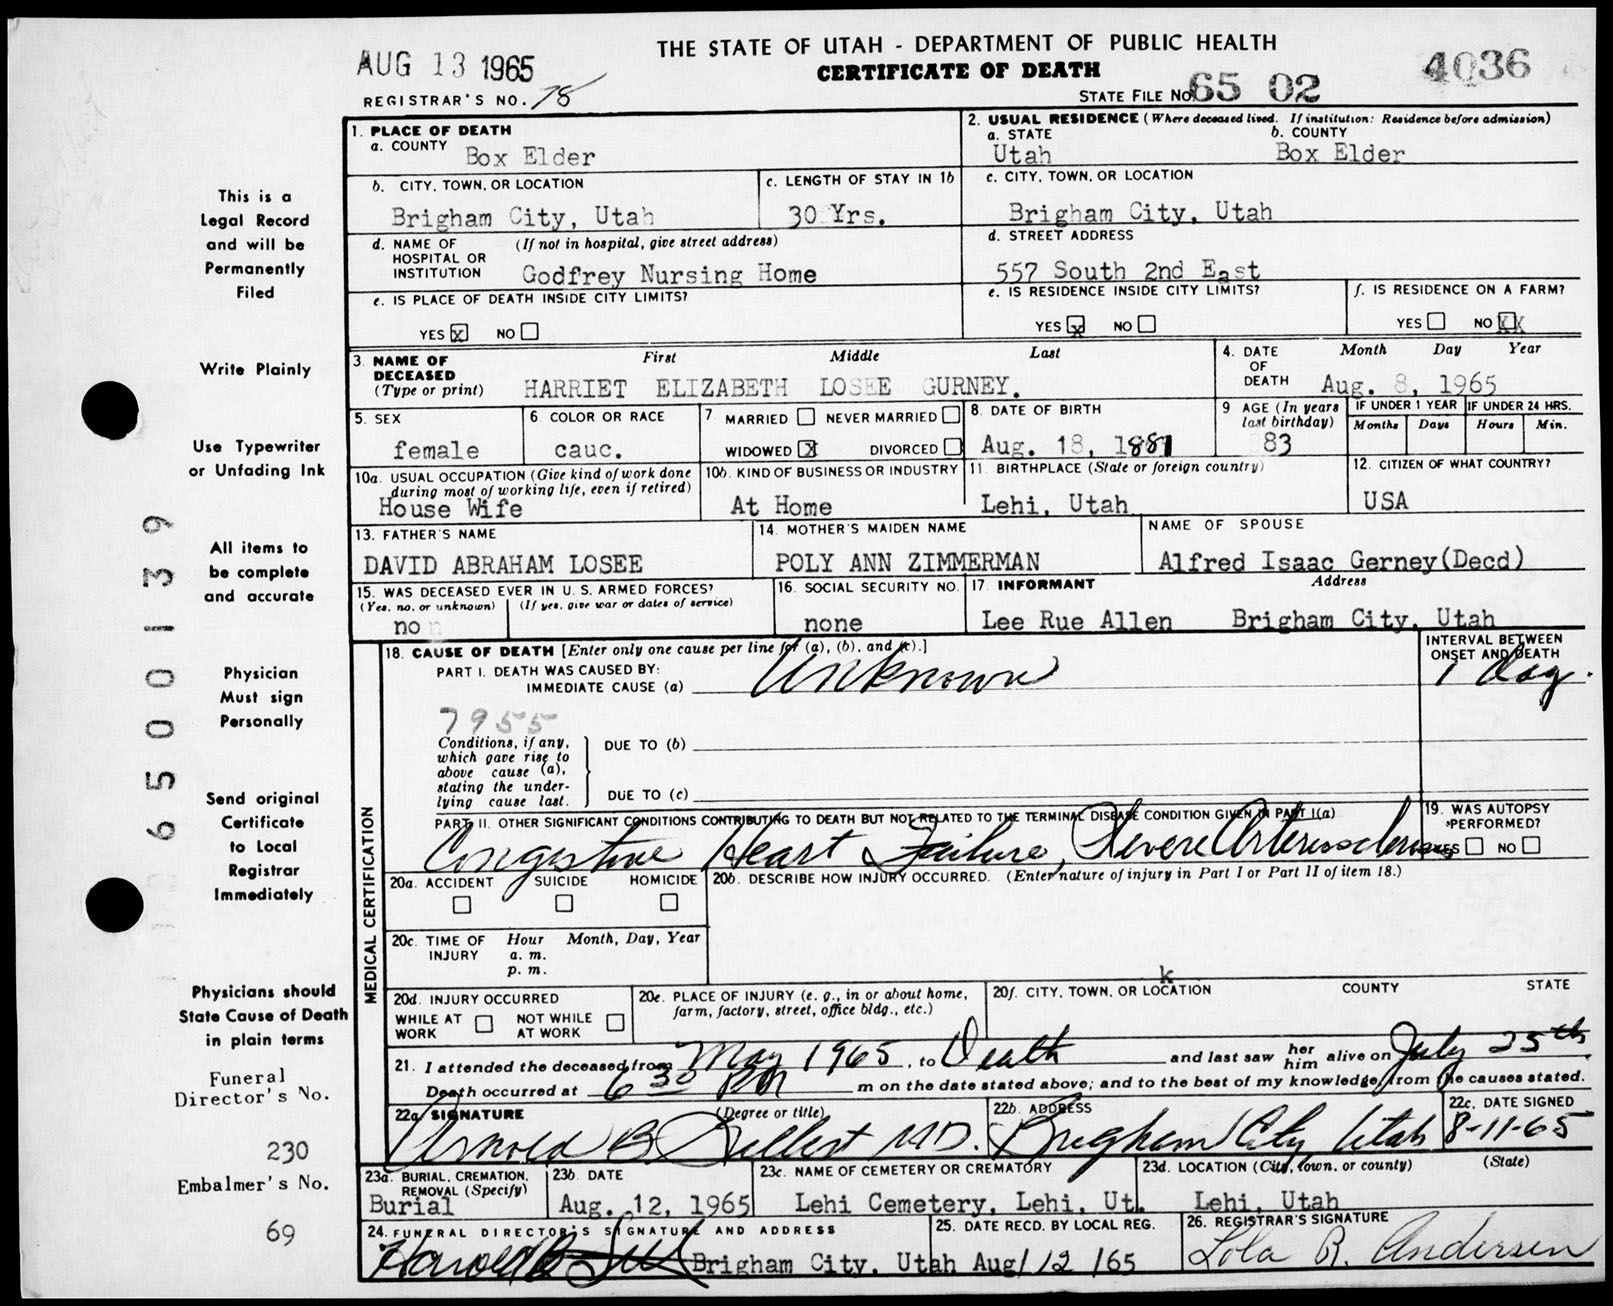 THE STATE OF UTAH - DEPARTMENT OF PUBLIC HEALTH
CERTIFICATE OF DEATH
AUG 13 1965
REGISTRAR'S NO. 78
STATE FILE No. 65 02 4036
This is a
Legal Record
and will be
Permanently
Filed
Write Plainly
Use Typewriter
or Unfading Ink
All items to
be complete
and accurate
Physician
Must sign
Personally
Send original
Certificate
to Local
Registrar
Immediately
Physicians should
State Cause of Death
in plain terms
Funeral
Director's No.
230
Embalmer's No.
69
6500139
1. PLACE OF DEATH
a. COUNTY Box Elder
2. USUAL RESIDENCE (Where deceased lived. If institution: Residence before admission)
a. STATE b. COUNTY
Utah Box Elder
b. CITY, TOWN, OR LOCATION
Brigham City, Utah
c. LENGTH OF STAY IN 1b
30 Yrs.
c. CITY, TOWN, OR LOCATION
Brigham City, Utah
d. NAME OF (If not in hospital, give street address)
HOSPITAL OR
INSTITUTION Godfrey Nursing Home
d. STREET ADDRESS
557 South 2nd East
e. IS PLACE OF DEATH INSIDE CITY LIMITS?
YES x NO
e. IS RESIDENCE INSIDE CITY LIMITS?
YES x NO
f. IS RESIDENCE ON A FARM?
YES NO XX
3. NAME OF First Middle Last
DECEASED
(Type or print) HARRIET ELIZABETH LOSEE GURNEY.
4. DATE Month Day Year
OF
DEATH Aug. 8, 1965
5. SEX
female
6. COLOR OR RACE
cauc.
7 MARRIED NEVER MARRIED
WIDOWED X DIVORCED
8. DATE OF BIRTH
Aug. 18, 1881
9 AGE (In years
last birthday)
83
IF UNDER 1 YEAR IF UNDER 24 HRS.
Months Days Hours Min.
10a. USUAL OCCUPATION (Give kind of work done
during most of working life, even if retired)
House Wife
10b. KIND OF BUSINESS OR INDUSTRY
At Home
11. BIRTHPLACE (State or foreign country)
Lehi, Utah
12. CITIZEN OF WHAT COUNTRY?
USA
13. FATHER'S NAME
DAVID ABRAHAM LOSEE
14. MOTHER'S MAIDEN NAME
POLY ANN ZIMMERMAN
NAME OF SPOUSE
Alfred Isaac Gerney(Decd)
15. WAS DECEASED EVER IN U. S. ARMED FORCES?
(Yes, no, or unknown) (If yes, give war or dates of service)
no
16. SOCIAL SECURITY NO.
none
17. INFORMANT Address
Lee Rue Allen Brigham City, Utah
MEDICAL CERTIFICATION
18. CAUSE OF DEATH [Enter only one cause per line for (a), (b), and (c).]
INTERVAL BETWEEN
ONSET AND DEATH
PART I. DEATH WAS CAUSED BY:
IMMEDIATE CAUSE (a) Unknown 1 day.
7955
Conditions, if any,
which gave rise to
above cause (a),
stating the under-
lying cause last.
DUE TO (b)
DUE TO (c)
PART II. OTHER SIGNIFICANT CONDITIONS CONTRIBUTING TO DEATH BUT NOT RELATED TO THE TERMINAL DISEASE CONDITION GIVEN IN PART I(a)
Congestive Heart Failure, Severe Arteriosclerosis
19. WAS AUTOPSY
PERFORMED?
YES NO
20a. ACCIDENT SUICIDE HOMICIDE
20b. DESCRIBE HOW INJURY OCCURRED. (Enter nature of injury in Part I or Part II of item 18.)
20c. TIME OF Hour Month, Day, Year
INJURY a. m.
p. m.
k
20d. INJURY OCCURRED
WHILE AT NOT WHILE
WORK AT WORK
20e. PLACE OF INJURY (e. g., in or about home,
farm, factory, street, office bldg., etc.)
20f. CITY, TOWN, OR LOCATION COUNTY STATE
21. I attended the deceased from May 1965, to Death and last saw her him alive on July 25th.
Death occurred at 6 30 PM m on the date stated above; and to the best of my knowledge, from the causes stated.
22a. SIGNATURE (Degree or title)
Arnold B Gilbert MD.
22b. ADDRESS
Brigham City Utah
22c. DATE SIGNED
8-11-65
23a. BURIAL, CREMATION,
REMOVAL (Specify)
Burial
23b. DATE
Aug. 12, 1965
23c. NAME OF CEMETERY OR CREMATORY
Lehi Cemetery, Lehi, Ut.
23d. LOCATION (City, town, or county) (State)
Lehi, Utah
24. FUNERAL DIRECTOR'S SIGNATURE AND ADDRESS
Harold B Brigham City, Utah
25. DATE RECD. BY LOCAL REG.
Aug/12/65
26. REGISTRAR'S SIGNATURE
Lola R. Andersen